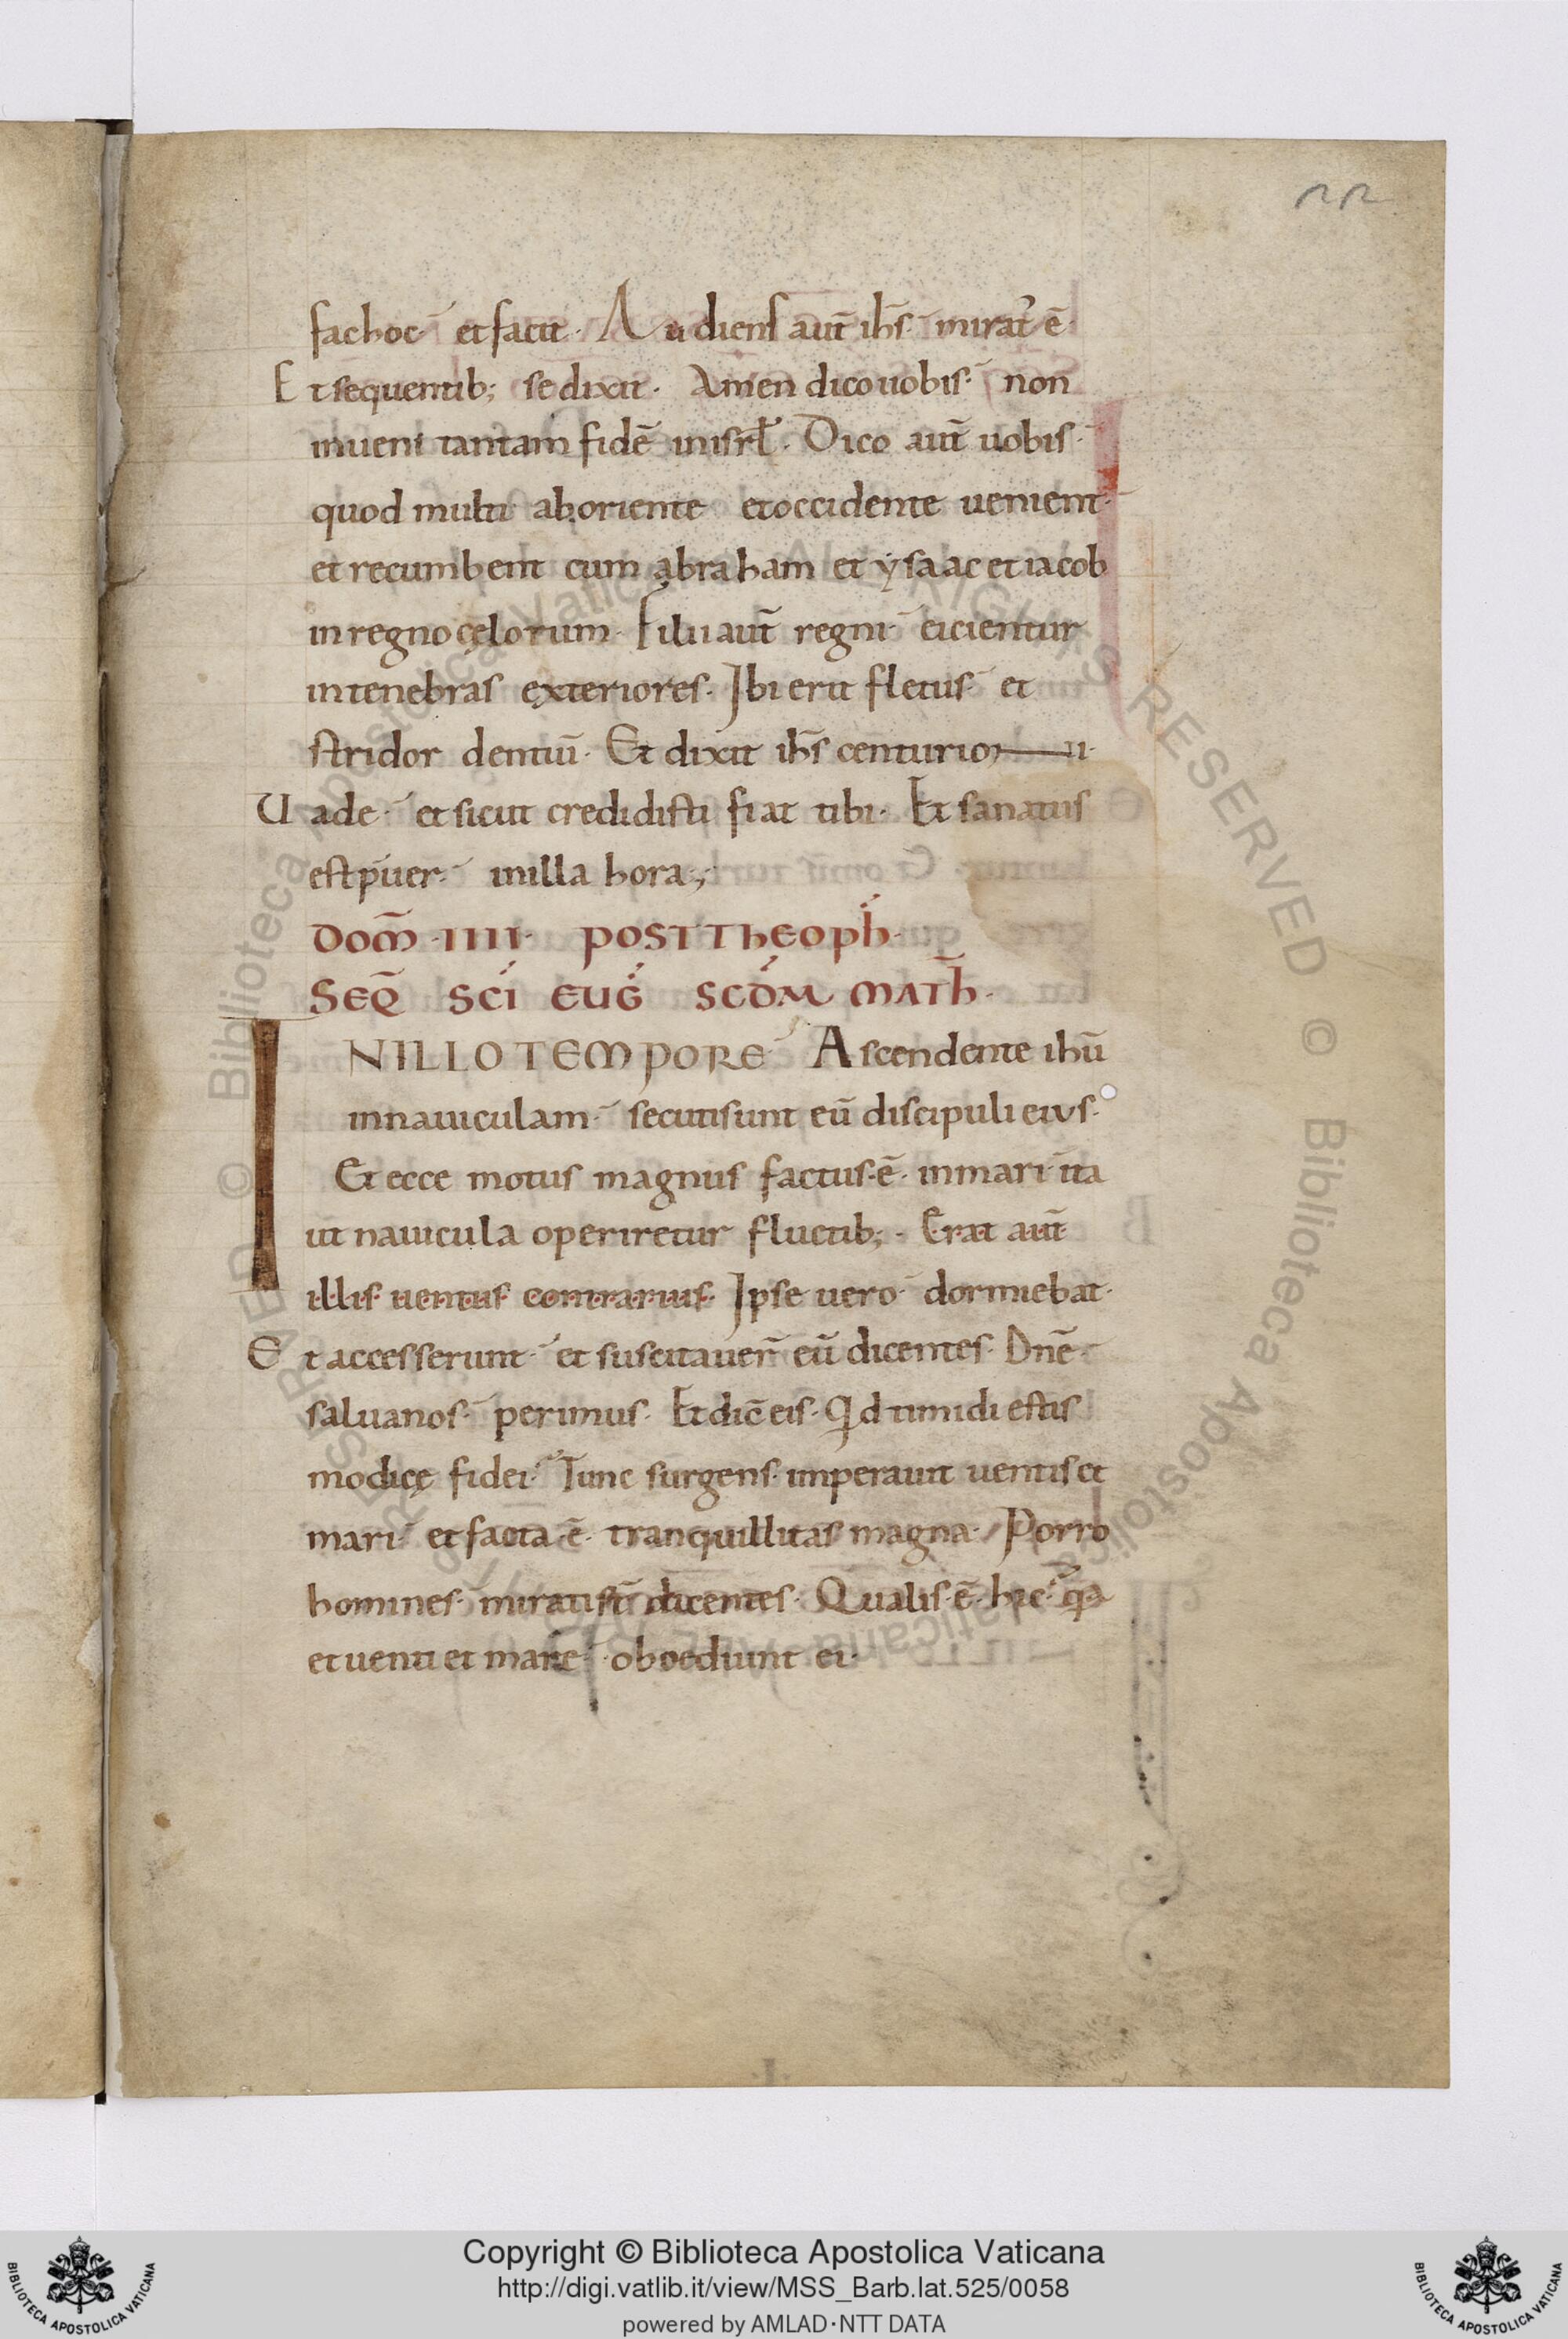 22
fac hoc· et facit· Audiens aut̄ ih̅s mirat᾽ ē·
Et sequentib; se dixit· Amen dico uobis· non
inueni tantam fidē in isrł· Dico aut̄ uobis·
quod multi ab oriente et occidente uenient·
et recumbent cum abraham et ysaac et iacob
in regno cęlorum· Filii aut̄ regni eicientur
in tenebras exteriores· Ibi erit fletus et
stridor dentiū· Et dixit ih̅s centurioni·
Uade· et sicut credidisti fiat tibi· Et sanatus
est puer· in illa hora·,
DOM̅ ·IIII· POST THEOPH̅·
SEQ̅ SCI EUG̅ SCDM MATH̅·
IN ILLO TEMPORE Ascendente ihū
in nauiculam· secuti sunt eū discipuli eius·
Et ecce motus magnus factus ē· in mari ita
ut nauicula operiretur fluctib;· Erat aut̄
illis uentus contrarius· Ipse uero dormiebat·
Et accesserunt· et suscitauer̄ eū dicentes· Dn̄e
salua nos· perimus· Et dic̄ eis· Qd timidi estis
modicę fidei· Tunc surgens· imperauit uentis et
mari· et facta ē· tranquillitas magna· Porro
homines· mirati st̄ dicentes· Qualis ē· hic· q̅a
et uenti et mare oboediunt ei·
© Biblioteca Apostolica Vaticana ALL RIGHTS RESERVED © Biblioteca Apostolica Vaticana
Copyright © Biblioteca Apostolica Vaticana
http://digi.vatlib.it/view/MSS_Barb.lat.525/0058
powered by AMLAD·NTT DATA
BIBLIOTECA APOSTOLICA VATICANA
BIBLIOTECA APOSTOLICA VATICANA